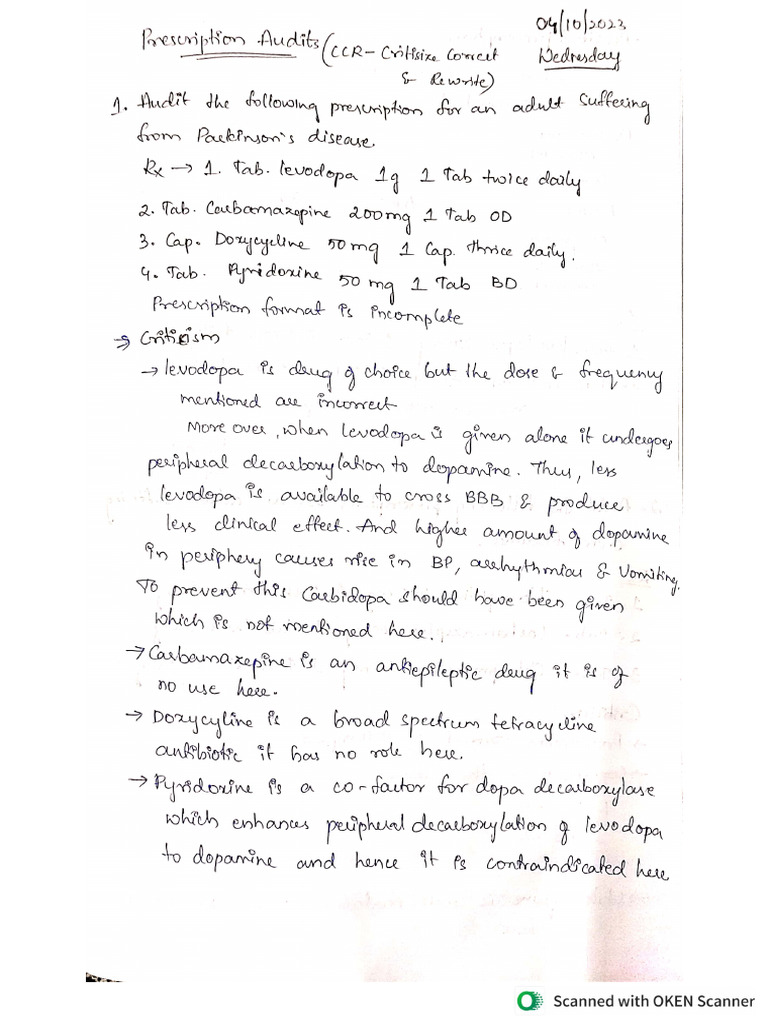 04/10/2023
Prescription Audits (CCR - Critisize Correct
& Rewrite)
Wednesday
1. Audit the following prescription for an adult suffering
from Parkinson's disease.
Rx → 1. Tab. levodopa 1g 1 Tab twice daily
2. Tab. Carbamazepine 200mg 1 Tab OD
3. Cap. Doxycycline 50mg 1 Cap. thrice daily.
4. Tab. Pyridoxine 50mg 1 Tab BD
Prescription format is incomplete
→ Criticism
→ levodopa is drug of choice but the dose & frequency
mentioned are incorrect
More over, when levodopa is given alone it undergoes
peripheral decarboxylation to dopamine. Thus, less
levodopa is available to cross BBB & produce
less clinical effect. And higher amount of dopamine
in periphery causes rise in BP, arrhythmias & Vomiting.
To prevent this Carbidopa should have been given
which is not mentioned here.
→ Carbamazepine is an antiepileptic drug it is of
no use here.
→ Doxycyline is a broad spectrum tetracycline
antibiotic it has no role here.
→ Pyridoxine is a co-factor for dopa decarboxylase
which enhances peripheral decarboxylation of levodopa
to dopamine and hence it is contraindicated here
Scanned with OKEN Scanner